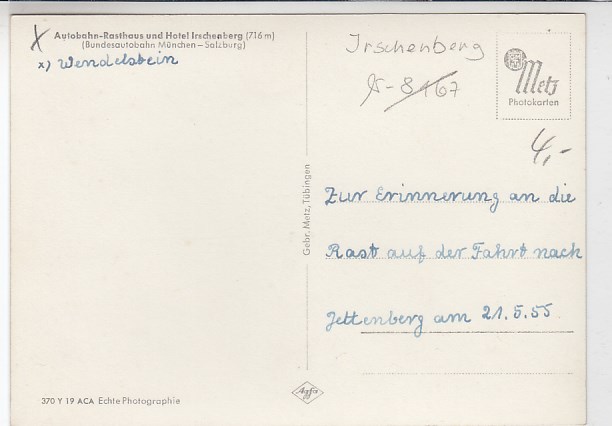 X Autobahn-Rasthaus und Hotel Irschenberg (716 m)
(Bundesautobahn München – Salzburg)
x) Wendelstein
Irschenberg
8167
Metz
Photokarten
4,-
Gebr. Metz, Tübingen
Zur Erinnerung an die
Rast auf der Fahrt nach
Jettenberg am 21.5.55
370 Y 19 ACA Echte Photographie
Agfa